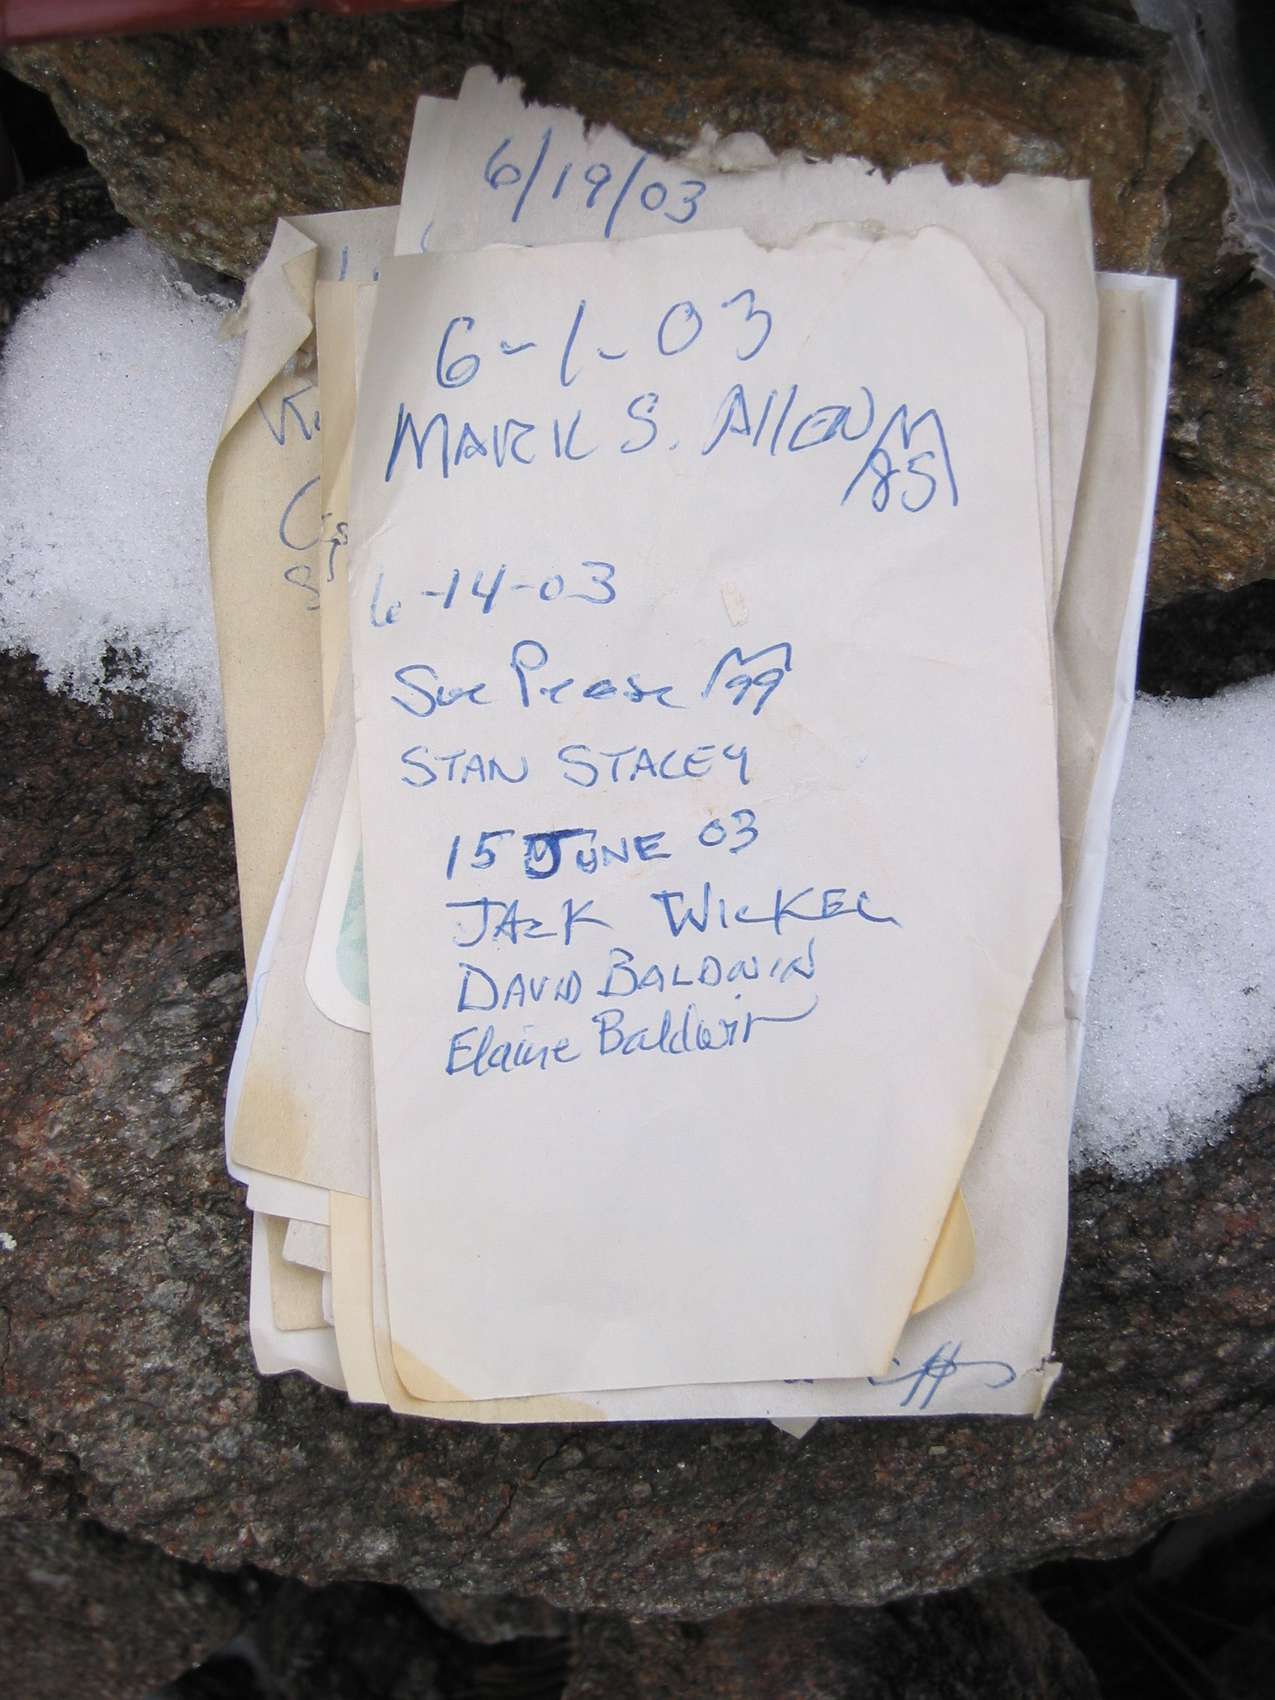 6/19/03
6-1-03
MARK S. Allen M
85
6-14-03
Sue Pease M99
STAN STACEY
15 JUNE 03
JACK WICKEL
DAVID BALDWIN
Elaine Baldwin